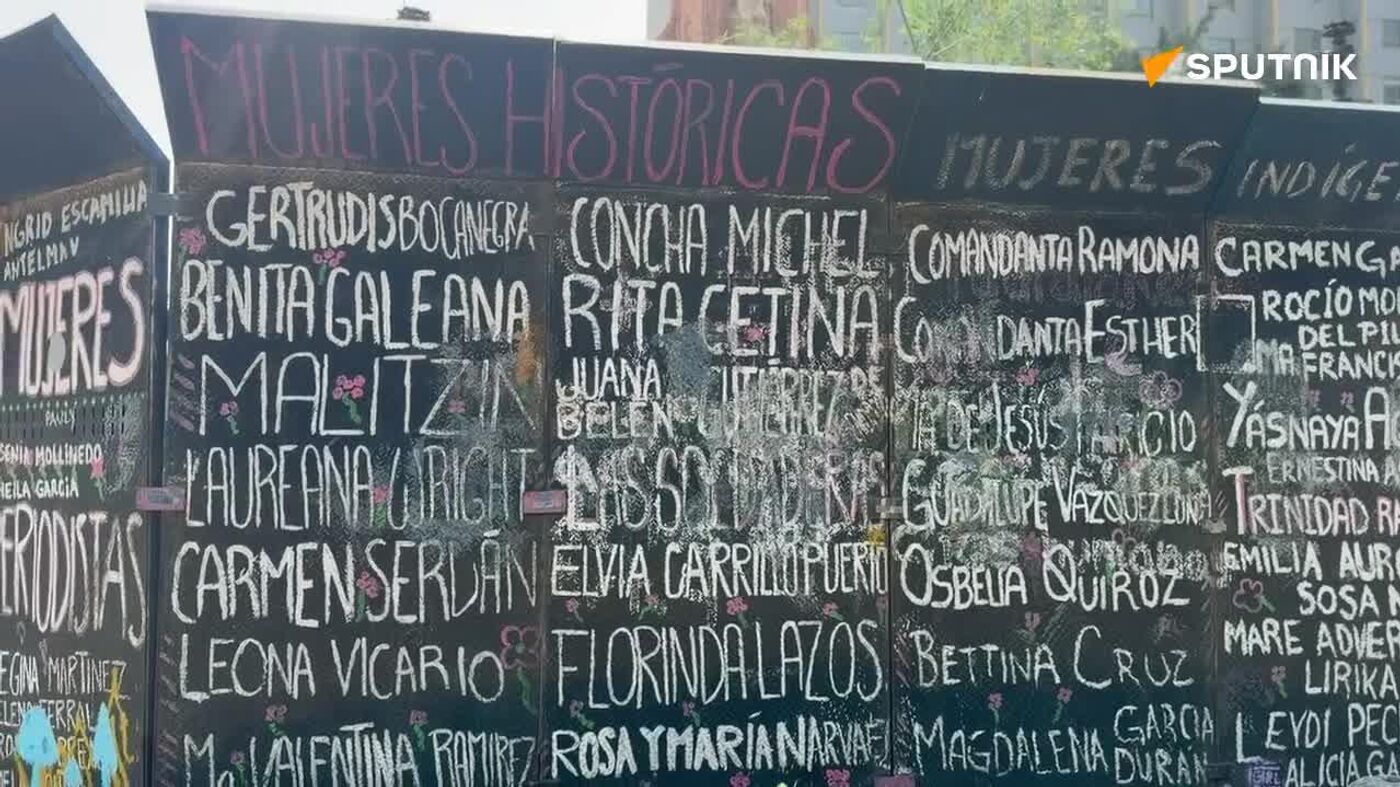 SPUTNIK
MUJERES HISTÓRICAS
MUJERES INDÍGE
NGRID ESCAMILLA
ANTELMAV
MUJERES
PAULY
SENIA MOLLINEDO
HEILA GARCIA
ERIODISTAS
EGINA MARTINEZ
GERTRUDIS BOCANEGRA
BENITA GALEANA
MALITZIN
LAUREANA WRIGHT
CARMEN SERDÁN
LEONA VICARIO
Ma VALENTINA RAMIREZ
CONCHA MICHEL
RITA CETINA
JUANA
BELÉN GUTIÉRREZ DE
LAS SOLDADERAS
ELVIA CARRILLO PUERTO
FLORINDA LAZOS
ROSA Y MARÍA NARVAE
COMANDANTA RAMONA
COMANDANTA ESTHER
MA DE JESÚS PATRICIO
GUADALUPE VAZQUEZ LUNA
OSBELIA QUIROZ
BETTINA CRUZ
MAGDALENA GARCIA
DURAN
CARMEN GA
ROCÍO MO
DEL PIL
MA FRANC
YÁSNAYA A
ERNESTINA
TRINIDAD R
EMILIA AUR
SOSA
MARE ADVE
LIRIKA
LEYDI PEC
ALICIA GA